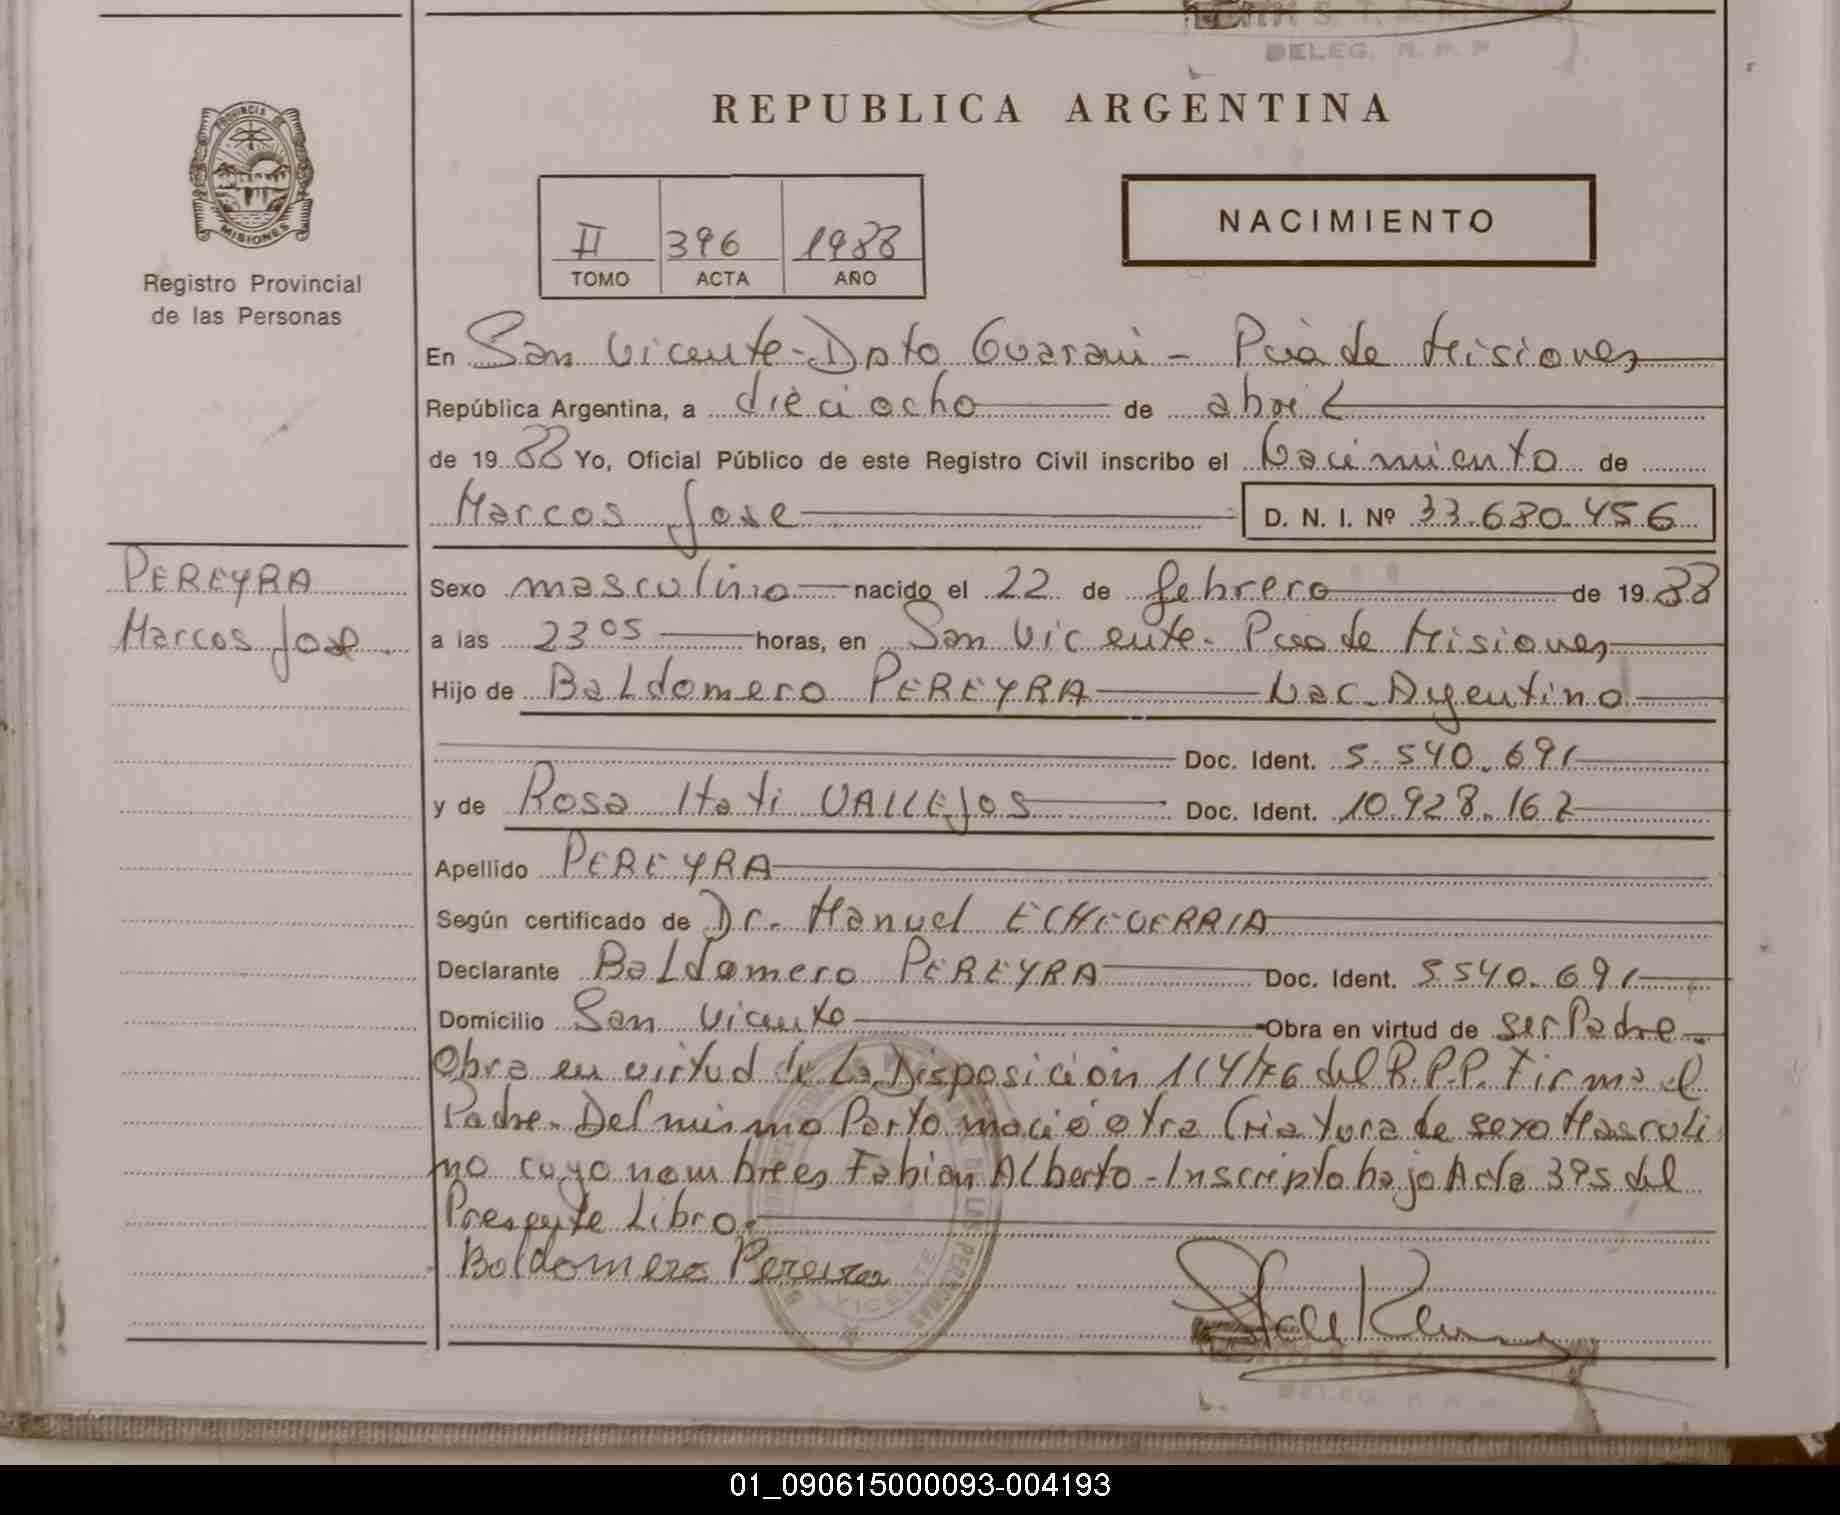 DELEG. R. P. P.
REPUBLICA ARGENTINA
PROVINCIA DE
MISIONES
Registro Provincial
de las Personas
II 396 1988
TOMO ACTA AÑO
NACIMIENTO
En San Vicente - Dpto Guarani - Pcia de Misiones
República Argentina, a dieciocho de abril
de 1988 Yo, Oficial Público de este Registro Civil inscribo el Nacimiento de
Marcos Jose D. N. I. Nº 33.680.456
PEREYRA
Marcos Jose
Sexo masculino nacido el 22 de febrero de 1988
a las 23 05 horas, en San Vicente - Pcia de Misiones
Hijo de Baldomero PEREYRA Nac. Argentino
Doc. Ident. 5.540.691
y de Rosa Itati VALLEJOS Doc. Ident. 10.928.162
Apellido PEREYRA
Según certificado de Dr. Manuel ECHEVERRIA
Declarante Baldomero PEREYRA Doc. Ident. 5.540.691
Domicilio San Vicente Obra en virtud de ser Padre
Obra en virtud de la Disposición 114/76 del R.P.P. Firma el
Padre. Del mismo Parto nació otra Criatura de sexo Masculi
no cuyo nombre es Fabian Alberto - Inscripto bajo Acta 395 del
Presente Libro.
Baldomero Pereira
DELEG. R. P. P.
01_090615000093-004193